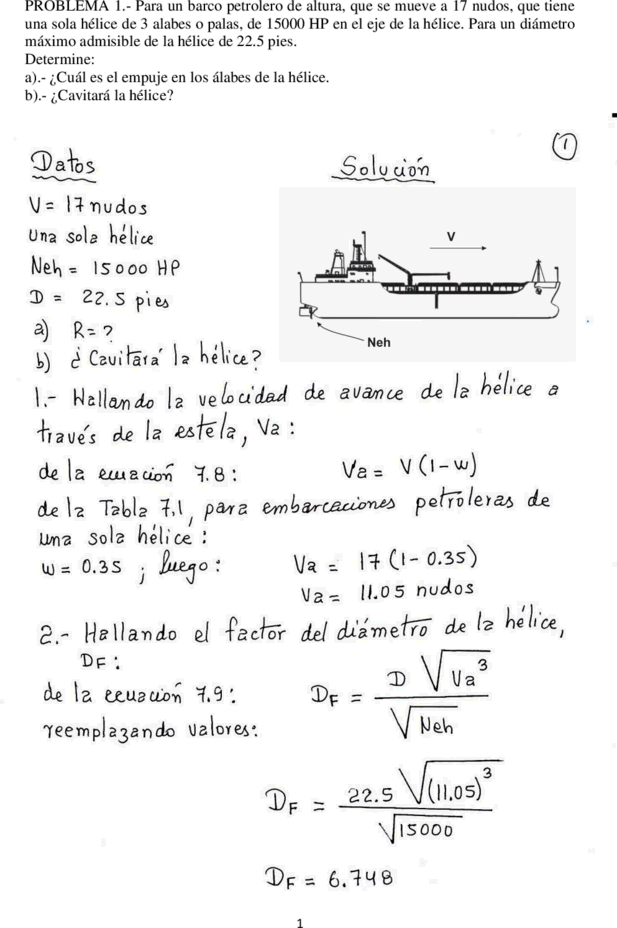 PROBLEMA 1.- Para un barco petrolero de altura, que se mueve a 17 nudos, que tiene
una sola hélice de 3 alabes o palas, de 15000 HP en el eje de la hélice. Para un diámetro
máximo admisible de la hélice de 22.5 pies.
Determine:
a).- ¿Cuál es el empuje en los álabes de la hélice.
b).- ¿Cavitará la hélice?
1
Datos
Solución
V = 17 nudos
Una sola hélice
Neh = 15000 HP
D = 22.5 pies
a) R = ?
b) ¿ Cavitará la hélice?
V
Neh
1.- Hallando la velocidad de avance de la hélice a
través de la estela, Va :
de la ecuación 7.8 : Va = V (1 - w)
de la Tabla 7.1, para embarcaciones petroleras de
una sola hélice :
w = 0.35 ; luego : Va = 17 (1 - 0.35)
Va = 11.05 nudos
2.- Hallando el factor del diámetro de la hélice,
DF :
de la ecuación 7.9 : DF = D √Va³ / √Neh
reemplazando valores:
DF = 22.5 √(11.05)³ / √15000
DF = 6.748
1